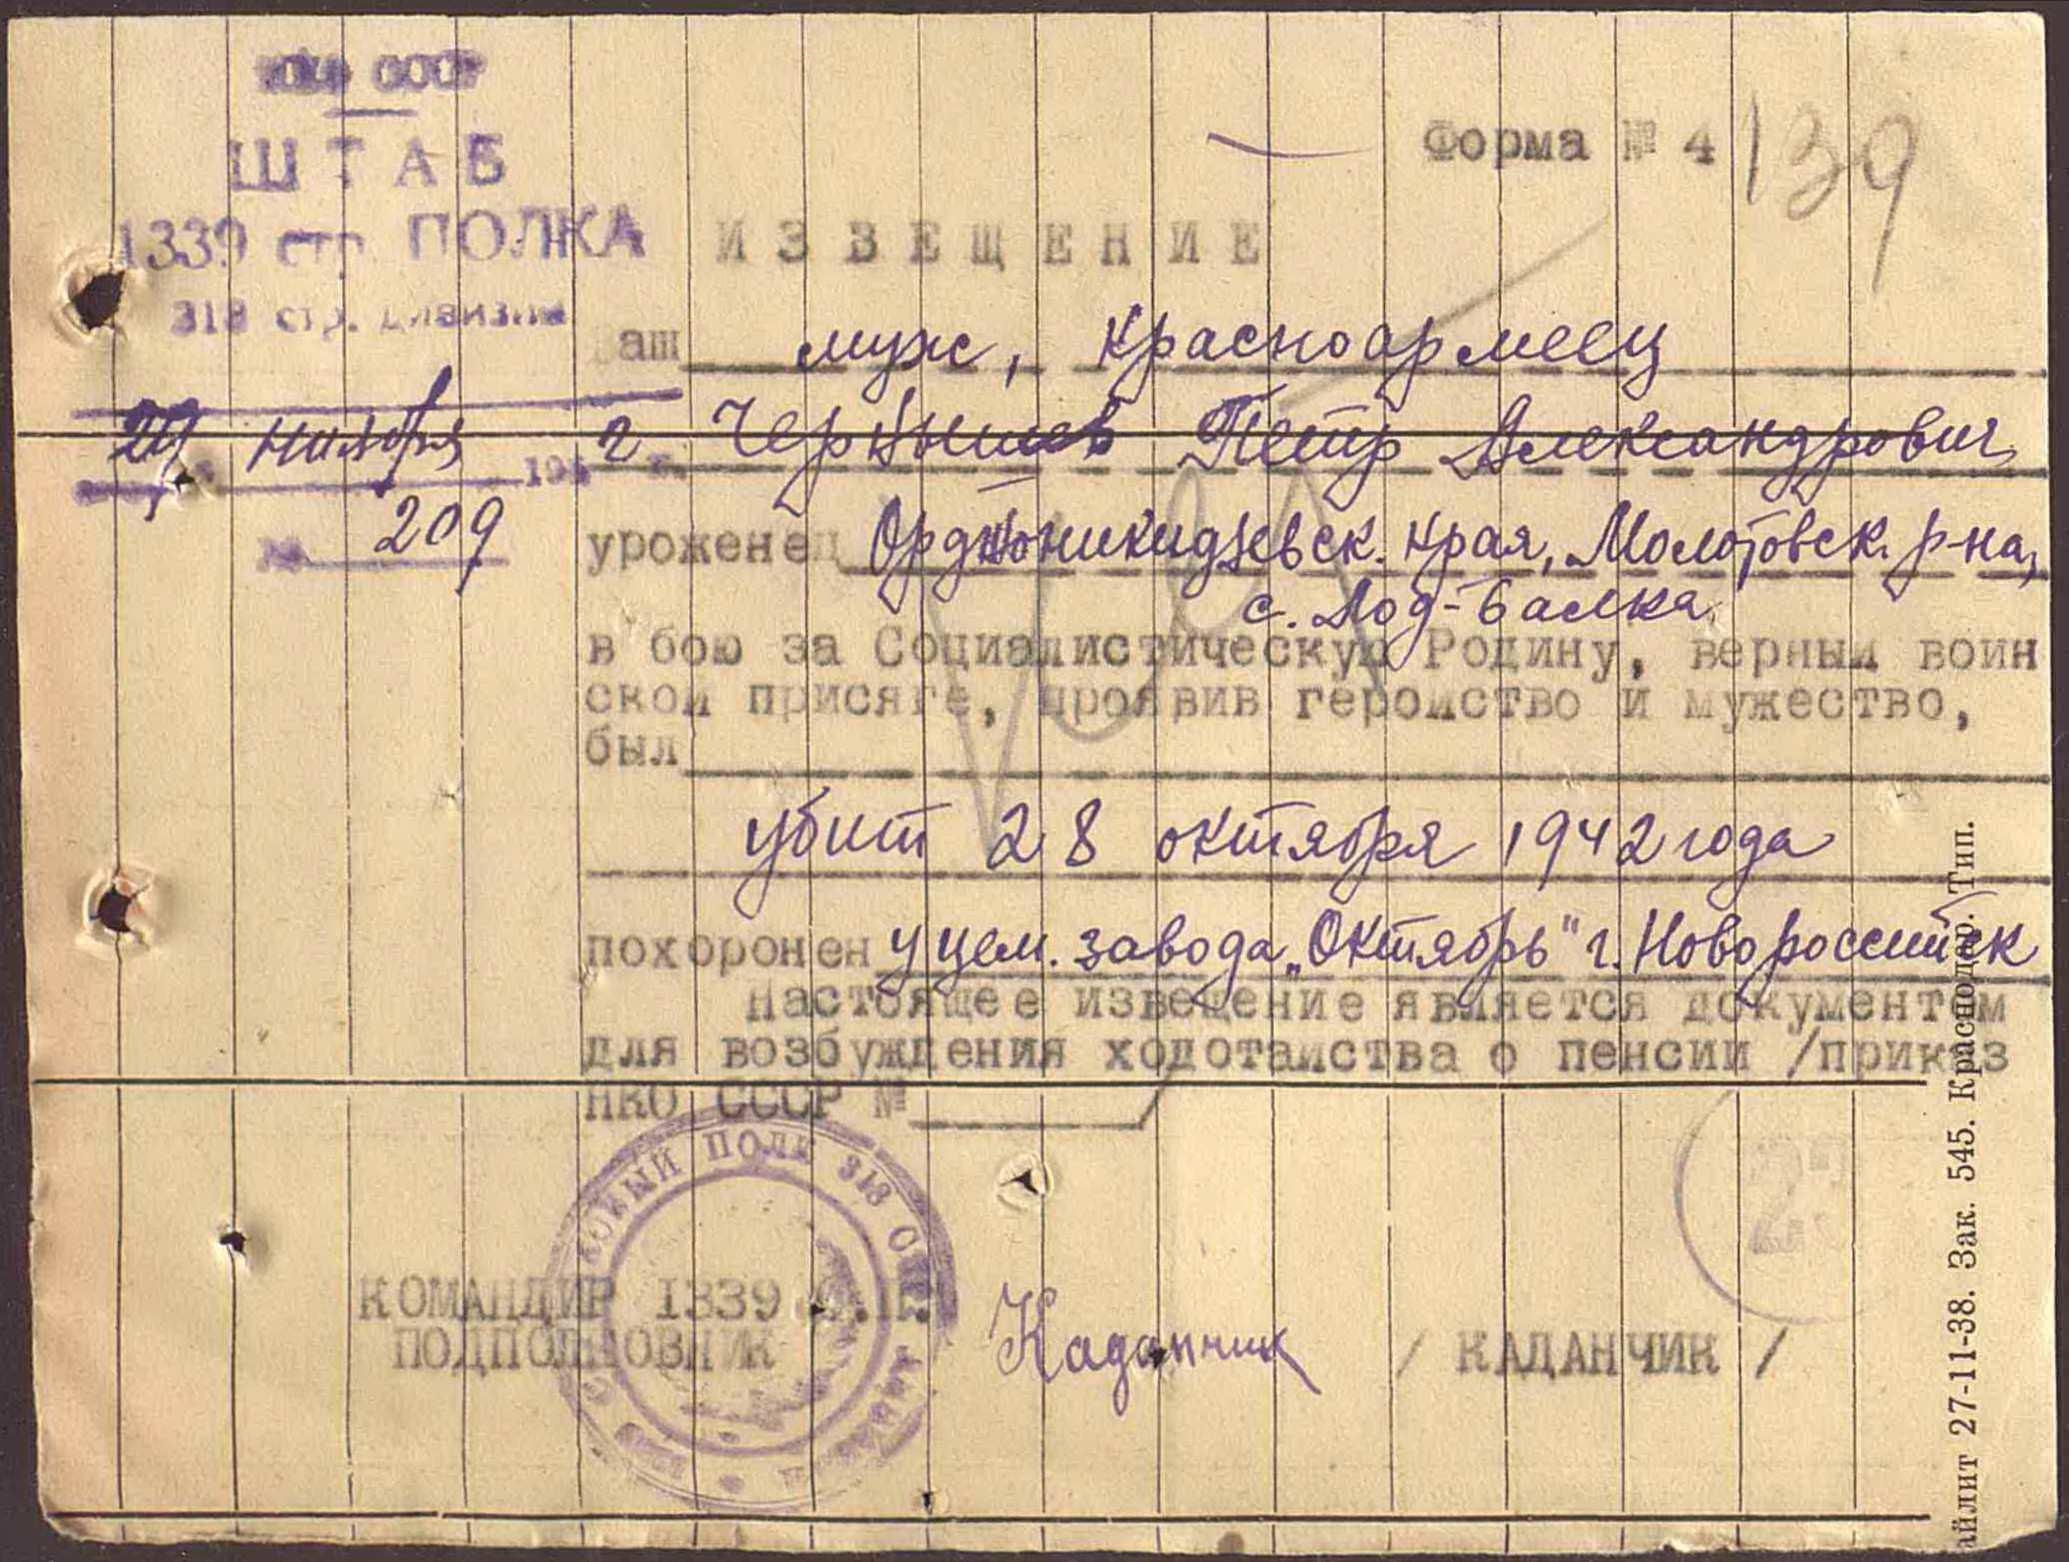 НКО СССР
ШТАБ
1339 стр. ПОЛКА
318 стр. дивизии
29 ноября 1942 г.
№ 209
Форма № 4
139
ИЗВЕЩЕНИЕ
Ваш муж, красноармеец
Чернышев Петр Александрович
уроженец Орджоникидзевск. края, Молотовск. р-на,
с. Лод-балка
в бою за Социалистическую Родину, верный воин
ской присяге, проявив геройство и мужество,
был
убит 28 октября 1942 года
похоронен у цем. завода „Октябрь" г. Новороссийск
Настоящее извещение является документом
для возбуждения ходотайства о пенсии /приказ
НКО СССР № /
КОМАНДИР 1339 С.П.
ПОДПОЛКОВНИК
Каданчик
/ КАДАНЧИК /
ПОЛК 318
айлит 27-11-38. Зак. 545. Краснодар. Тип.